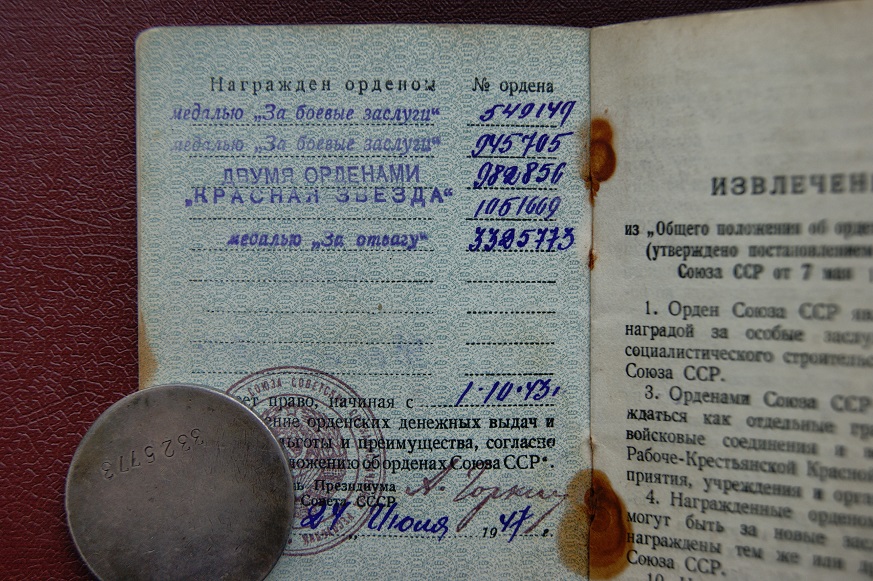 Награжден орденом № ордена
медалью „За боевые заслуги“ 549149
медалью „За боевые заслуги“ 945705
ДВУМЯ ОРДЕНАМИ 982856
„КРАСНАЯ ЗВЕЗДА“ 1051669
медалью „За отвагу“ 3325773
право, начиная с 1·10·43.
орденских денежных выдач и
льготы и преимущества, согласно
об орденах Союза ССР“.
Президиума
Совета СССР А. Горкин
24 Июля 1947 г.
СОЮЗА СОВЕТСКИХ
3325773
ИЗВЛЕЧЕН
из „Общего положения об орде
(утверждено постановлением
Союза ССР от 7 мая
1. Орден Союза ССР яв
наградой за особые заслу
социалистического строитель
Союза ССР.
3. Орденами Союза ССР
ждаться как отдельные гра
войсковые соединения и
Рабоче-Крестьянской Красно
приятия, учреждения и орга
4. Награжденные орденом
могут быть за новые зас
награждены тем же или д
Союза ССР.
10.